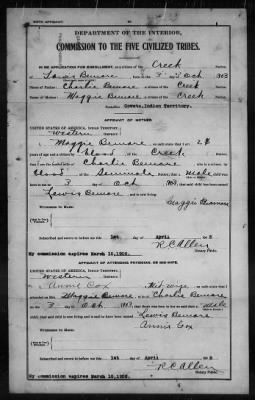 BIRTH AFFIDAVIT.
DEPARTMENT OF THE INTERIOR,
COMMISSION TO THE FIVE CIVILIZED TRIBES.
IN RE APPLICATION FOR ENROLLMENT, as a citizen of the Creek Nation,
of Lewis Bemore, born on the 3 day of Oct, 1903
Name of Father: Charlie Bemore a citizen of the Creek Nation.
Name of Mother: Maggie Bemore a citizen of the Creek Nation.
Postoffice Coweta, Indian Territory.
AFFIDAVIT OF MOTHER.
UNITED STATES OF AMERICA, Indian Territory,
Western District.
I, Maggie Bemore, on oath state that I am 24
years of age and a citizen by blood, of the Creek Nation;
that I am the lawful wife of Charlie Bemore, who is a citizen, by
blood of the Nation; that a male child was
born to me on 3 day of Oct, 1903, that said child has been named
Lewis Bemore, and is now living.
Maggie Bemore
WITNESSES TO MARK:
Subscribed and sworn to before me this 1st day of April, 190
R C Allen
Notary Public.
My commission expires March 10,
AFFIDAVIT OF ATTENDING PHYSICIAN, OR MID-WIFE.
UNITED STATES OF AMERICA, Indian Territory,
Western District.
I, Annie Cox, a Mid-wife, on oath state that I
attended on Mrs. Maggie Bemore, wife of Charlie Bemore
on the 3 day of Oct, 1903, that there was born to her on said date a male
child; that said child is now living and is said to have been named Lewis Bemore
Annie Cox
WITNESSES TO MARK:
Subscribed and sworn to before me this 1st day of April, 190
R C Allen
Notary Public.
My commission expires March 10,